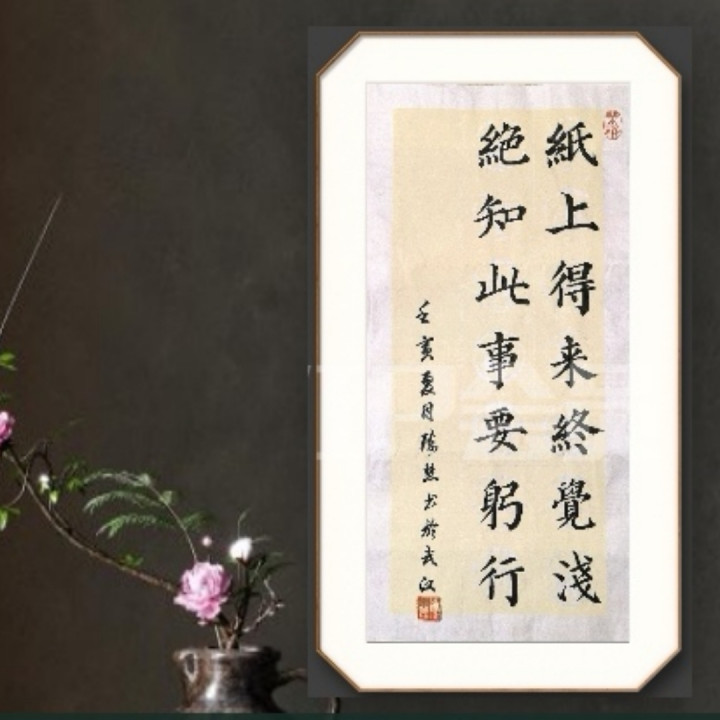 紙上得来終覺淺
絶知此事要躬行
壬寅夏月陈慧书於武汉